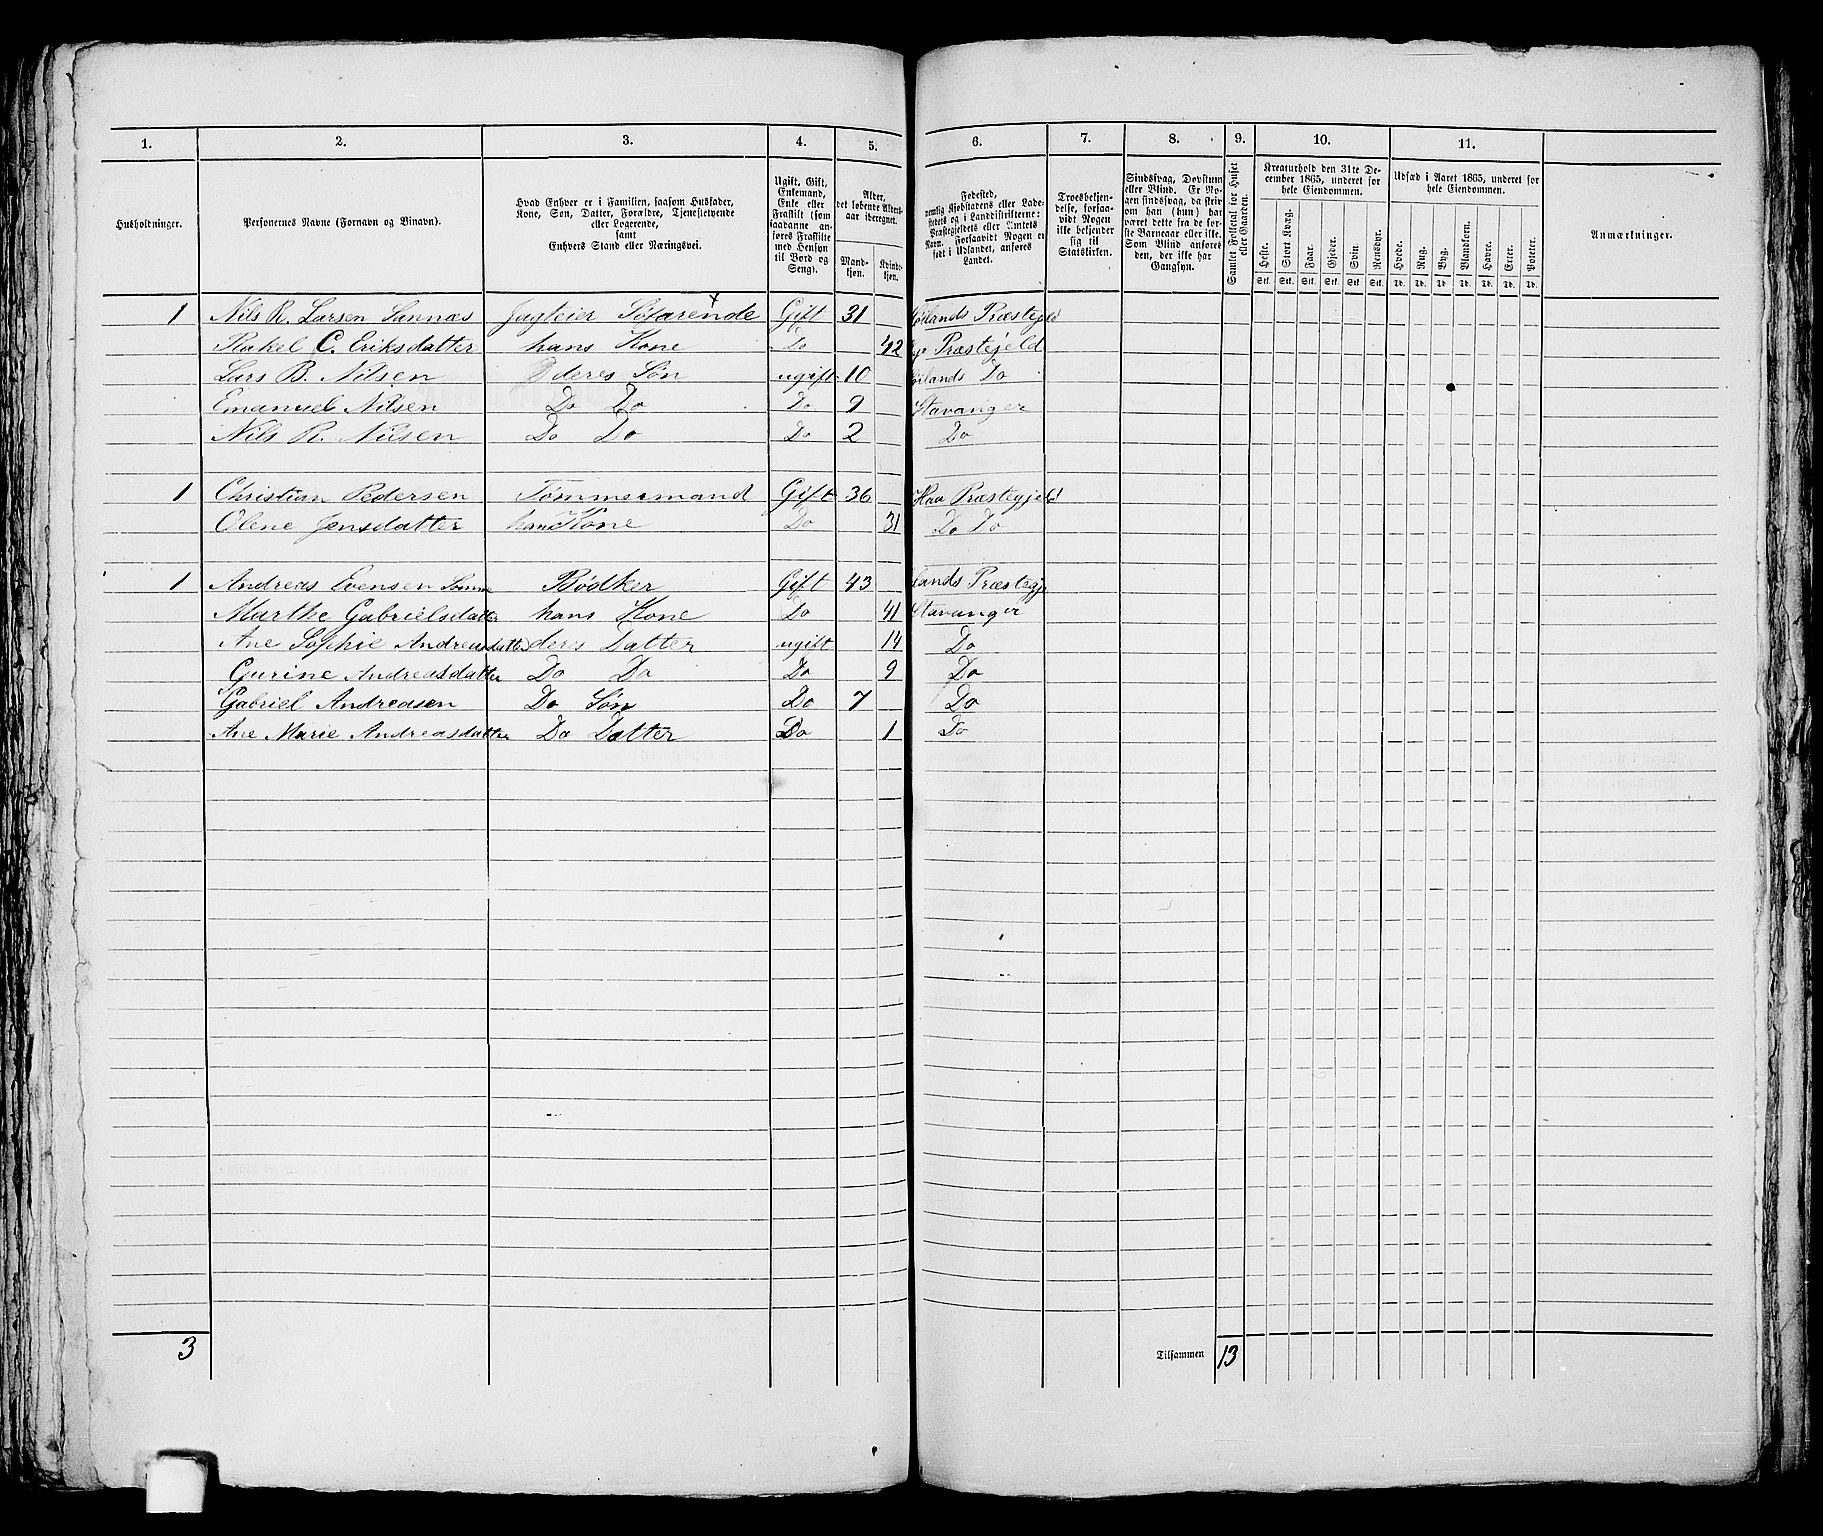 1. 2. 3. 4. 5. 6. 7. 8. 9. 10. 11.
Husholdninger.
Personernes Navne (Fornavn og Binavn).
Hvad Enhver er i Familien, saasom Husfader,
Kone, Søn, Datter, Forældre, Tjenestetyende
eller Logerende,
samt
Enhvers Stand eller Næringsvei.
Ugift, Gift,
Enkemand,
Enke eller
Fraskilt (som
saadanne an-
føres Fraskilte
med Hensyn
til Bord og
Seng).
Alder,
det løbende Alders-
aar iberegnet.
Mand-
kjøn.
Kvind-
kjøn.
Fødested,
nemlig Kjøbstadens eller Lade-
stedets og i Landdistrikterne:
Præstegjeldets eller Amtets
Navn. Forsaavidt Nogen er
født i Udlandet, anføres
Landet.
Troesbekjen-
delse, forsaa-
vidt Nogen
ikke bekjender
sig til
Statskirken.
Sindssvag, Døvstum
eller Blind. Er No-
gen sindssvag, da skriv
om han (hun) har
været dette fra de før-
ste Barneaar eller ikke.
Som Blind anføres
den, der ikke har
Gangsyn.
Samlet Folketal for Huset
eller Gaarden.
Kreaturhold den 31te De-
cember 1865, underet for
hele Eiendommen.
Heste. Stort Kvæg. Faar. Gjeder. Svin. Rensdyr.
Stk. Stk. Stk. Stk. Stk. Stk.
Udsæd i Aaret 1865, underet for
hele Eiendommen.
Hvede. Rug. Byg. Blandkorn. Havre. Erter. Poteter.
Td. Td. Td. Td. Td. Td. Td.
Anmærkninger.
1 Nils R. Larsen Sannæs Jagteier Søfarende Gift 31 Høilands Præstegjeld
Rakel C. Eriksdatter hans Kone Do 42 Præstejeld
Lars B. Nilsen deres Søn ugift 10 Høilands Do
Emanuel Nilsen Do Do Do 9 Stavanger
Nils R. Nilsen Do Do Do 2 Do
1 Christian Pedersen Tømmermand Gift 36 Haa Præstegjeld
Olene Jensdatter hans Kone Do 31 Do Do
1 Andreas Evensen Sømme Bødker Gift 43 lands Præstegj
Marthe Gabrielsdatter hans Kone Do 41 Stavanger
Ane Sophie Andreasdatter deres Datter ugift 14 Do
Gurine Andreasdatter Do Do Do 9 Do
Gabriel Andreasen Do Søn Do 7 Do
Ane Marie Andreasdatter Do Datter Do 1 Do
3 Tilsammen 13